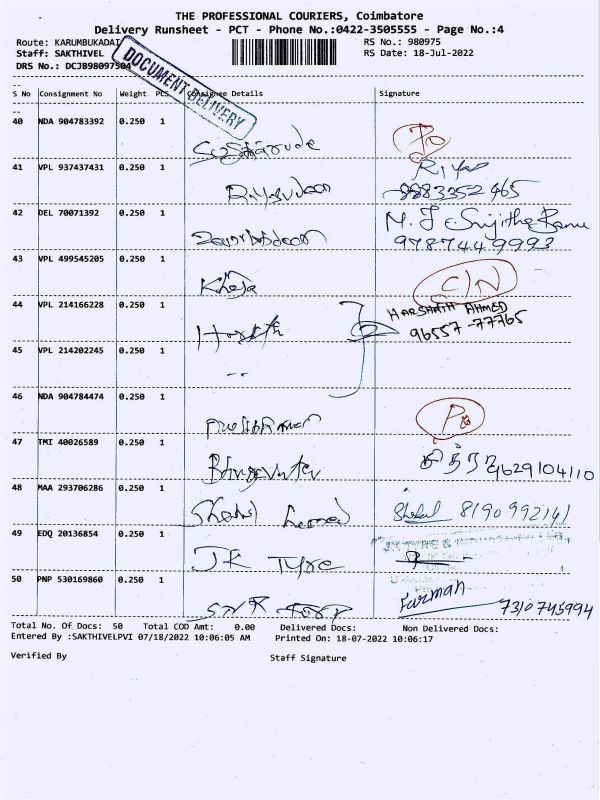 THE PROFESSIONAL COURIERS, Coimbatore
Delivery Runsheet - PCT - Phone No.:0422-3505555 - Page No.:4
Route: KARUMBUKADAI RS No.: 980975
Staff: SAKTHIVEL RS Date: 18-Jul-2022
DRS No.: DCJB980975
DOCUMENT DELIVERY
S No Consignment No Weight PCS Consignee Details Signature
40 NDA 904783392 0.250 1
41 VPL 937437431 0.250 1 Riya
8883352465
42 DEL 70071392 0.250 1
9787449993
43 VPL 499545205 0.250 1 Khaja C/N
44 VPL 214166228 0.250 1 HARSHATH AHMED
96557-77765
45 VPL 214202245 0.250 1 --
46 NDA 904784474 0.250 1
47 TMI 40026589 0.250 1 9629104110
48 MAA 293706286 0.250 1
49 EDQ 20136854 0.250 1 JK Tyre
50 PNP 530169860 0.250 1 Furman
7310745994
Total No. Of Docs: 50 Total COD Amt: 0.00 Delivered Docs: Non Delivered Docs:
Entered By :SAKTHIVELPVI 07/18/2022 10:06:05 AM Printed On: 18-07-2022 10:06:17
Verified By Staff Signature